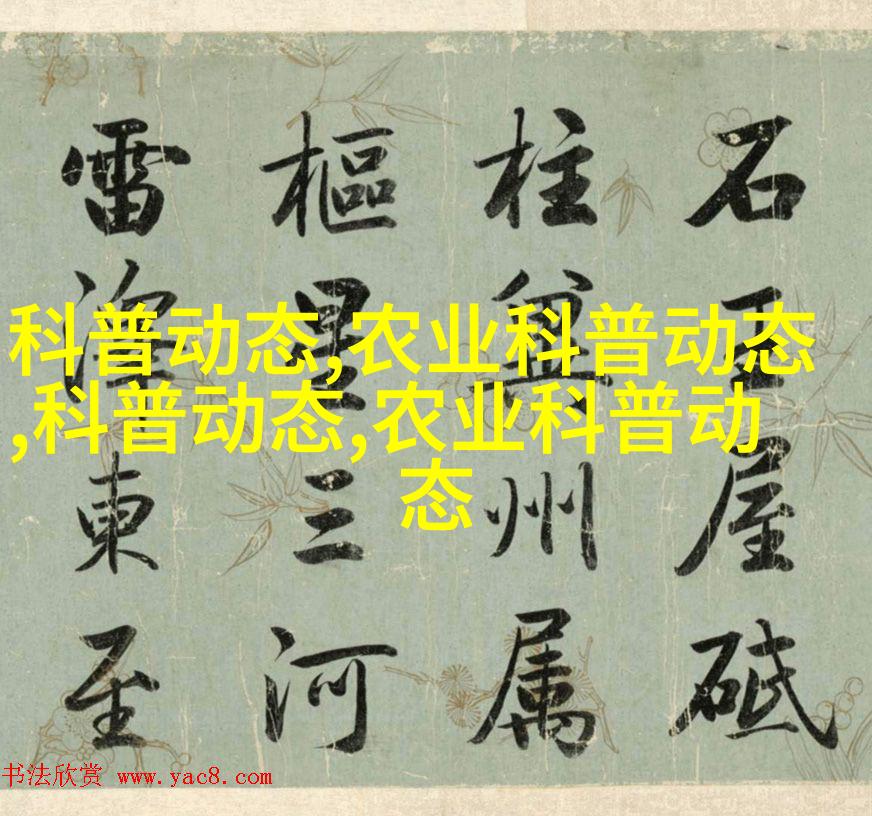 石屋砥
柱州属
樞三河
雷東至
科普动态,农业科普动态
,科普动态,农业科普动
态
书法欣赏 www.yac8.com